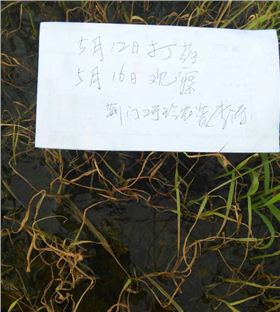 5月12日打药
5月16日观察
荆门